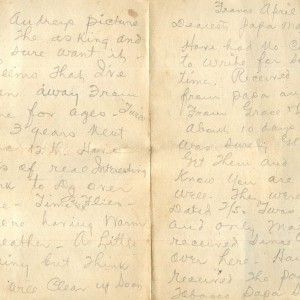 Audreys picture
The asking and
sure want it.
seems that I've
en away from
me for ages. Twice
3 years next
12th. Have
s of real Interesting
k to Do over
e - Time Flies -
ere having Warm
eather - A Little
ing but Think
will Clear up Soon
France April
Dearest Papa Ma
Have had no C
To write for So
Time. Received
from papa an
From Grace
About 10 days
was sure Gl
Get Them and
Know you are
Well. They were
Dated 2/5. Twas
and only Ma
received since
over here. Ha
received The pa